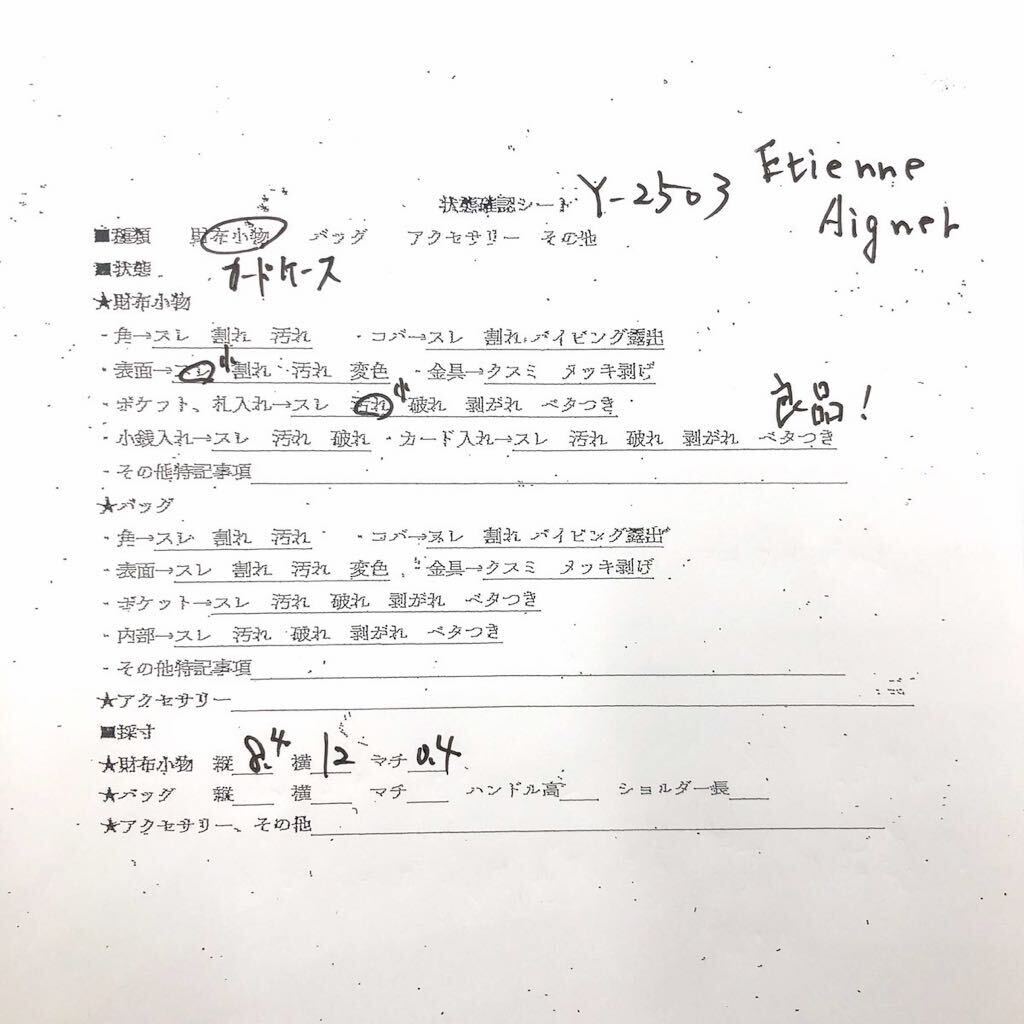 状態確認シート Y-2503 Etienne Aigner
■種類 財布小物 バッグ アクセサリー その他
■状態 カードケース
★財布小物
・角→スレ 割れ 汚れ ・コバ→スレ 割れ パイピング露出
・表面→スレ小 割れ 汚れ 変色 ・金具→クスミ メッキ剥げ
・ポケット、札入れ→スレ 汚れ小 破れ 剥がれ ベタつき
良品!
・小銭入れ→スレ 汚れ 破れ ・カード入れ→スレ 汚れ 破れ 剥がれ ベタつき
・その他特記事項
★バッグ
・角→スレ 割れ 汚れ ・コバ→スレ 割れ パイピング露出
・表面→スレ 割れ 汚れ 変色 ・金具→クスミ メッキ剥げ
・ポケット→スレ 汚れ 破れ 剥がれ ベタつき
・内部→スレ 汚れ 破れ 剥がれ ベタつき
・その他特記事項
★アクセサリー
■採寸
★財布小物 縦8.4 横12 マチ0.4
★バッグ 縦 横 マチ ハンドル高 ショルダー長
★アクセサリー、その他